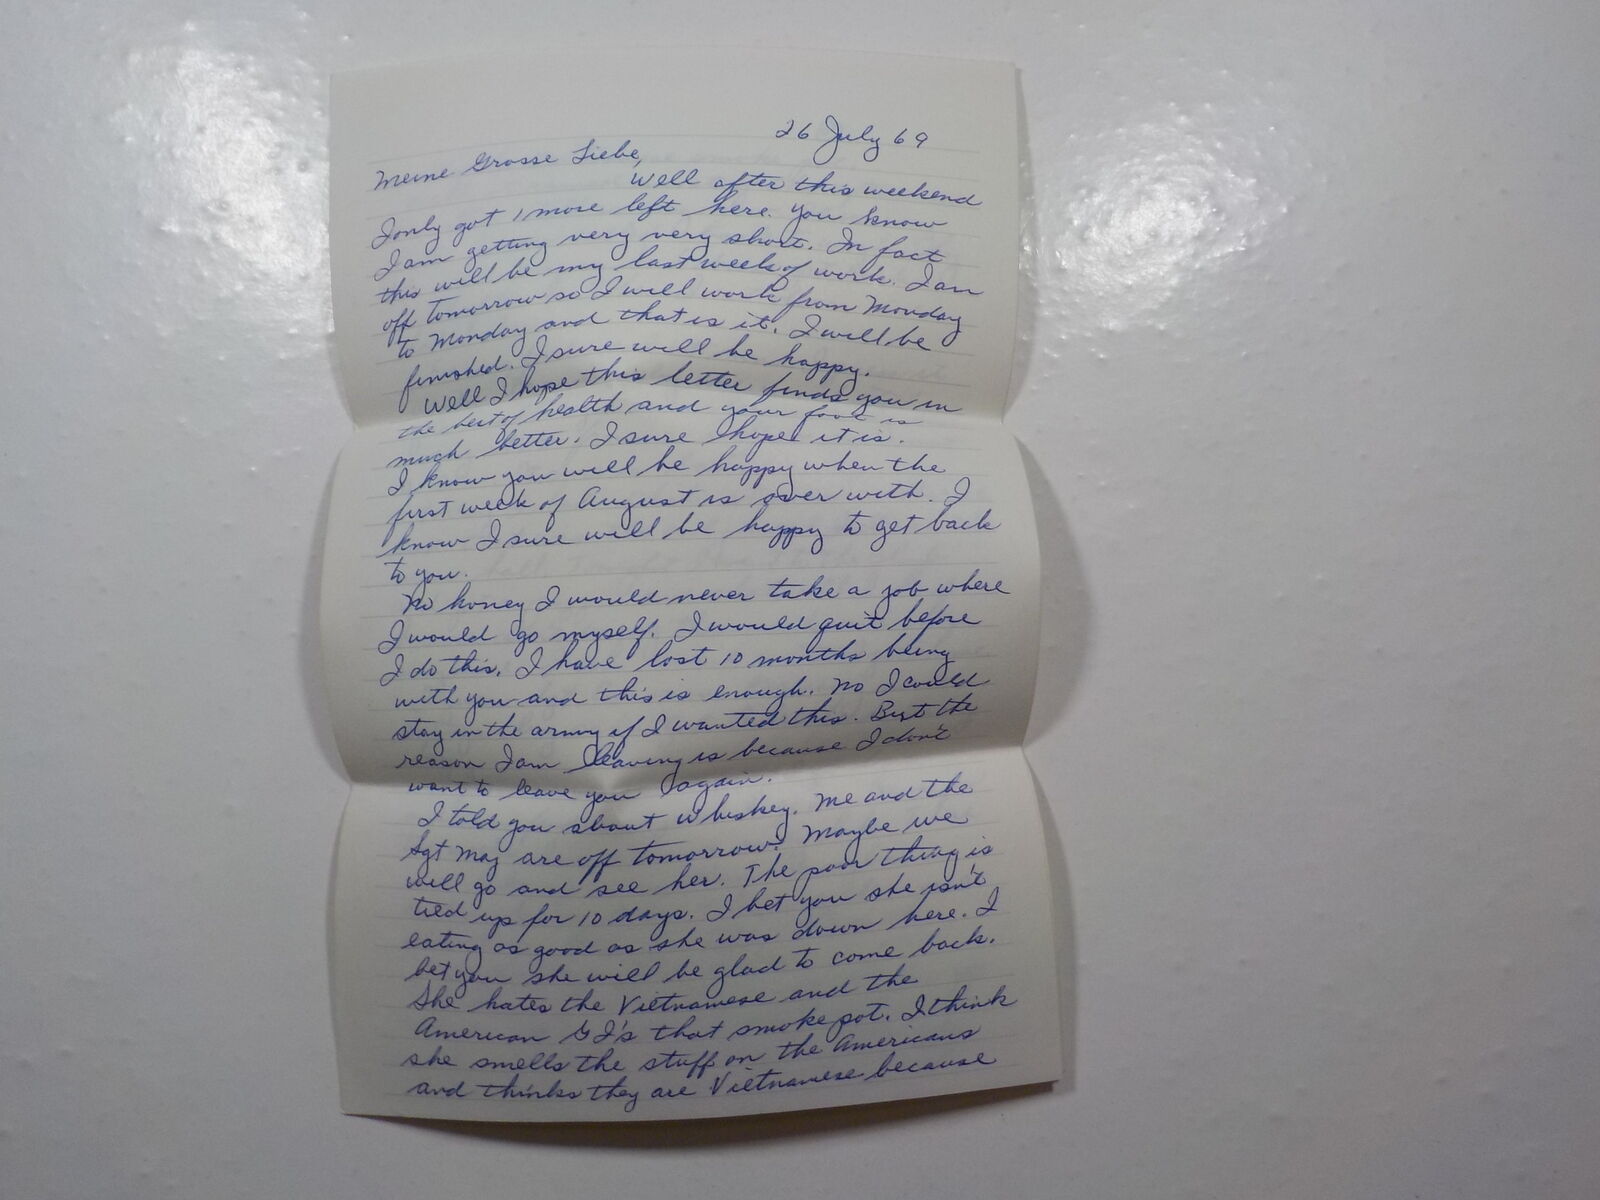 26 July 69
Meine Grosse Liebe,
Well after this weekend
I only got 1 more left here. You know
I am getting very very short. In fact
this will be my last week of work. I am
off tomorrow so I will work from Monday
to Monday and that is it. I will be
finished. I sure will be happy.
Well I hope this letter finds you in
the best of health and your foot is
much better. I sure hope it is.
I know you will be happy when the
first week of August is over with. I
know I sure will be happy to get back
to you.
No honey I would never take a job where
I would go myself. I would quit before
I do this. I have lost 10 months being
with you and this is enough. No I could
stay in the army if I wanted this. But the
reason I am leaving is because I don't
want to leave you again.
I told you about Whiskey. Me and the
Sgt Maj are off tomorrow. Maybe we
will go and see her. The poor thing is
tied up for 10 days. I bet you she isn't
eating as good as she was down here. I
bet you she will be glad to come back.
She hates the Vietnamese and the
American GI's that smoke pot. I think
she smells the stuff on the Americans
and thinks they are Vietnamese because